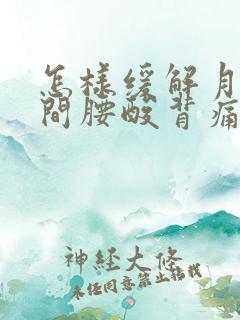 怎樣緩解月
間腰酸背痛
神經大條
未经同意禁止转载